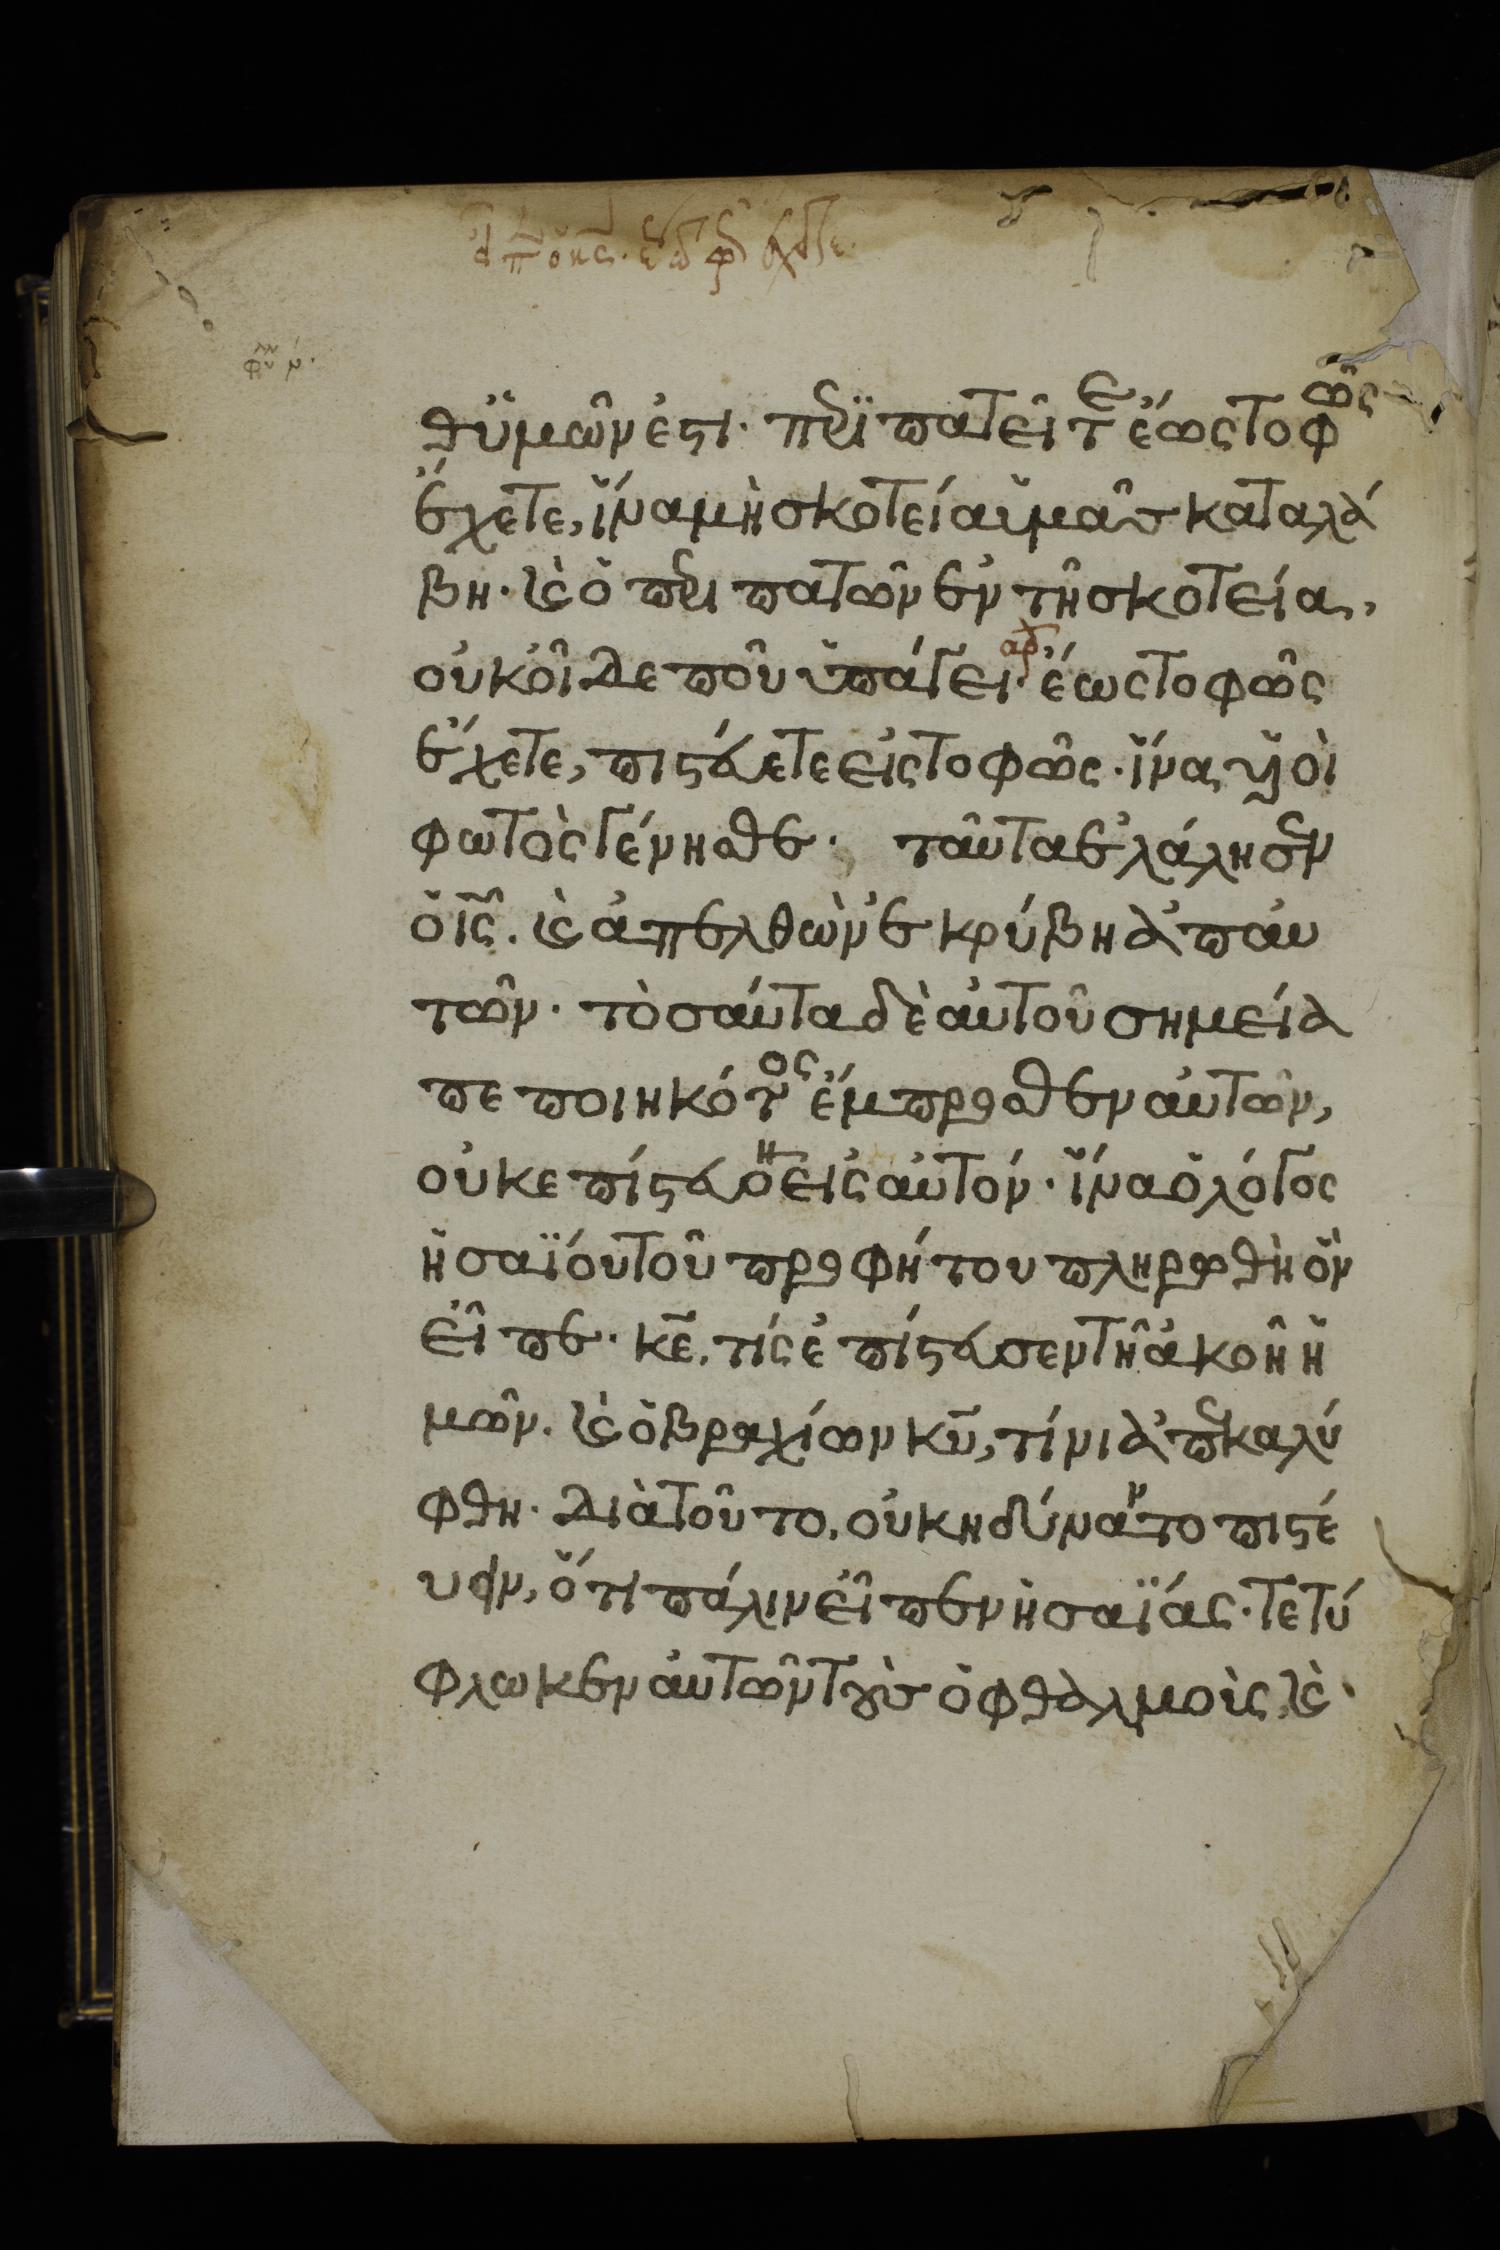 θ ὑμῶν ἐστι· περϊπατεῖτε ἕως το φῶς
ἔχετε, ἵνα μὴ σκοτεία ὑμᾶσ καταλά
βη· κ(αὶ) ὁ περιπατῶν ἐν τῆ σκοτεία,
οὐκ οἶδε ποῦ ὑπάγει· ἕως το φῶς
ἔχετε, πιστεύετε εἰς το φῶς· ἵνα υἱοὶ
φωτὸς γένησθε· ταῦτα ἐλάλησεν
ὁ ις̅. κ(αὶ) ἀπελθὼν ἐκρύβη ἀπ αὐ
τῶν· τὸσαύτα δὲ ἀυτοῦ σημεία
πεποιηκότος ἔμπροσθεν αὐτῶν,
οὐκ επίστευον εἰς αὐτόν· ἵνα ὁ λόγος
ἡσαϊόυ τοῦ προφήτου πληρωθὴ ὃν
εἶπε· κε̅, τίς ἐπίστευσεν τῆ ἀκοῆ ἡ
μῶν. κ(αὶ) ὁ βραχίων κυ̅, τίνι ἀπεκαλύ
φθη· διὰ τοῦτο, οὐκ ηδύναντο πιστέ
υειν, ὅτι πάλιν εἶπεν ἡσαϊάς· τετύ
φλωκεν ἀυτῶν τοὺσ ὀφθαλμοὶς κ(αὶ)